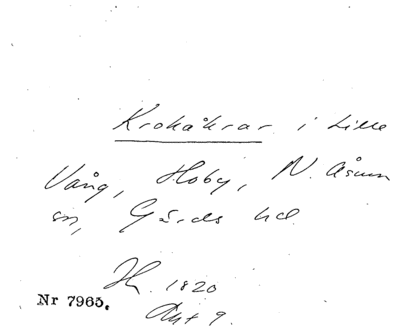 Krokåkrar i Lille
Vång, Hoby, N. Åsum
sn, Gärds hd
1820
Akt 9.
Nr 7965.